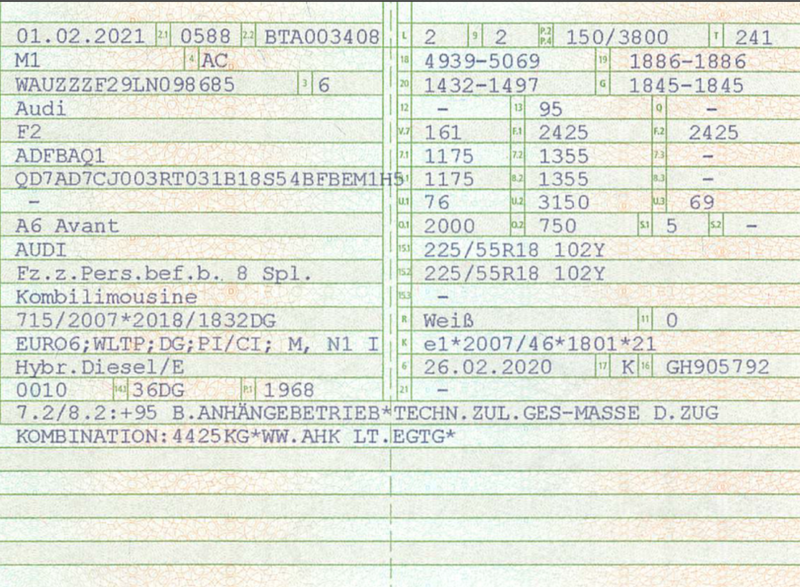 01.02.2021 2.1 0588 2.2 BTA003408
M1 4 AC
WAUZZZF29LN098685 3 6
Audi
F2
ADFBAQ1
QD7AD7CJ003RT031B18S54BFBEM1H5
-
A6 Avant
AUDI
Fz.z.Pers.bef.b. 8 Spl.
Kombilimousine
715/2007*2018/1832DG
EURO6;WLTP;DG;PI/CI; M, N1 I
Hybr.Diesel/E
0010 14.1 36DG P.1 1968
L 2 9 2 P.2 P.4 150/3800 T 241
18 4939-5069 19 1886-1886
20 1432-1497 G 1845-1845
12 - 13 95 Q -
V.7 161 F.1 2425 F.2 2425
7.1 1175 7.2 1355 7.3 -
1175 8.2 1355 8.3 -
U.1 76 U.2 3150 U.3 69
O.1 2000 O.2 750 S.1 5 S.2 -
15.1 225/55R18 102Y
15.2 225/55R18 102Y
15.3 -
R Weiß 11 0
K e1*2007/46*1801*21
6 26.02.2020 17 K 16 GH905792
21 -
7.2/8.2:+95 B.ANHÄNGEBETRIEB*TECHN.ZUL.GES-MASSE D.ZUG
KOMBINATION:4425KG*WW.AHK LT.EGTG*